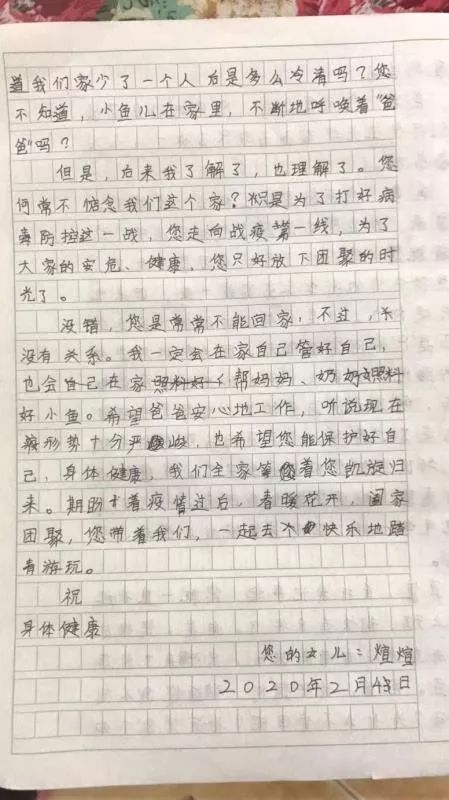 道我们家少了一个人后是多么冷清吗？您
不知道，小鱼儿在家里，不断地呼唤着“爸
爸”吗？
但是，后来我了解了，也理解了。您
何常不惦念我们这个家？只是为了打好病
毒防控这一战，您走向战疫第一线，为了
大家的安危、健康，您只好放下团聚的时
光了。
没错，您是常常不能回家；不过，
没有关系。我一定会在家自己管好自己，
也会自己在家帮妈妈、奶奶照料
好小鱼。希望爸爸安心地工作，听说现在
形势十分严峻，也希望您能保护好自
己，身体健康，我们全家等着您凯旋归
来。期盼着疫情过后，春暖花开，阖家
团聚，您带着我们，一起去快乐地踏
青游玩。
祝
身体健康
您的女儿：煊煊
2020年2月 日